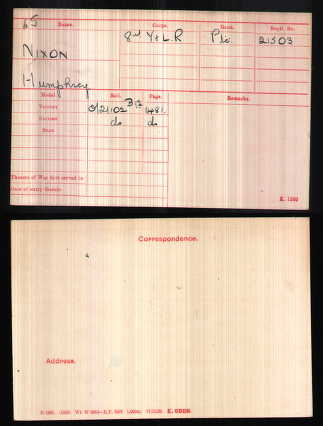 65 Name. Corps. Rank. Regtl. No.
8th Y & L.R Pte 21503
NIXON
Humphrey
Medal. Roll. Page. Remarks.
Victory 0/2/102 B12 1481.
British do do
Star
Theatre of War first served in
Date of entry therein
K. 1380
Correspondence.
Address.